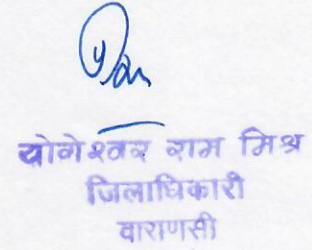 योगेश्वर राम मिश्र
जिलाधिकारी
वाराणसी